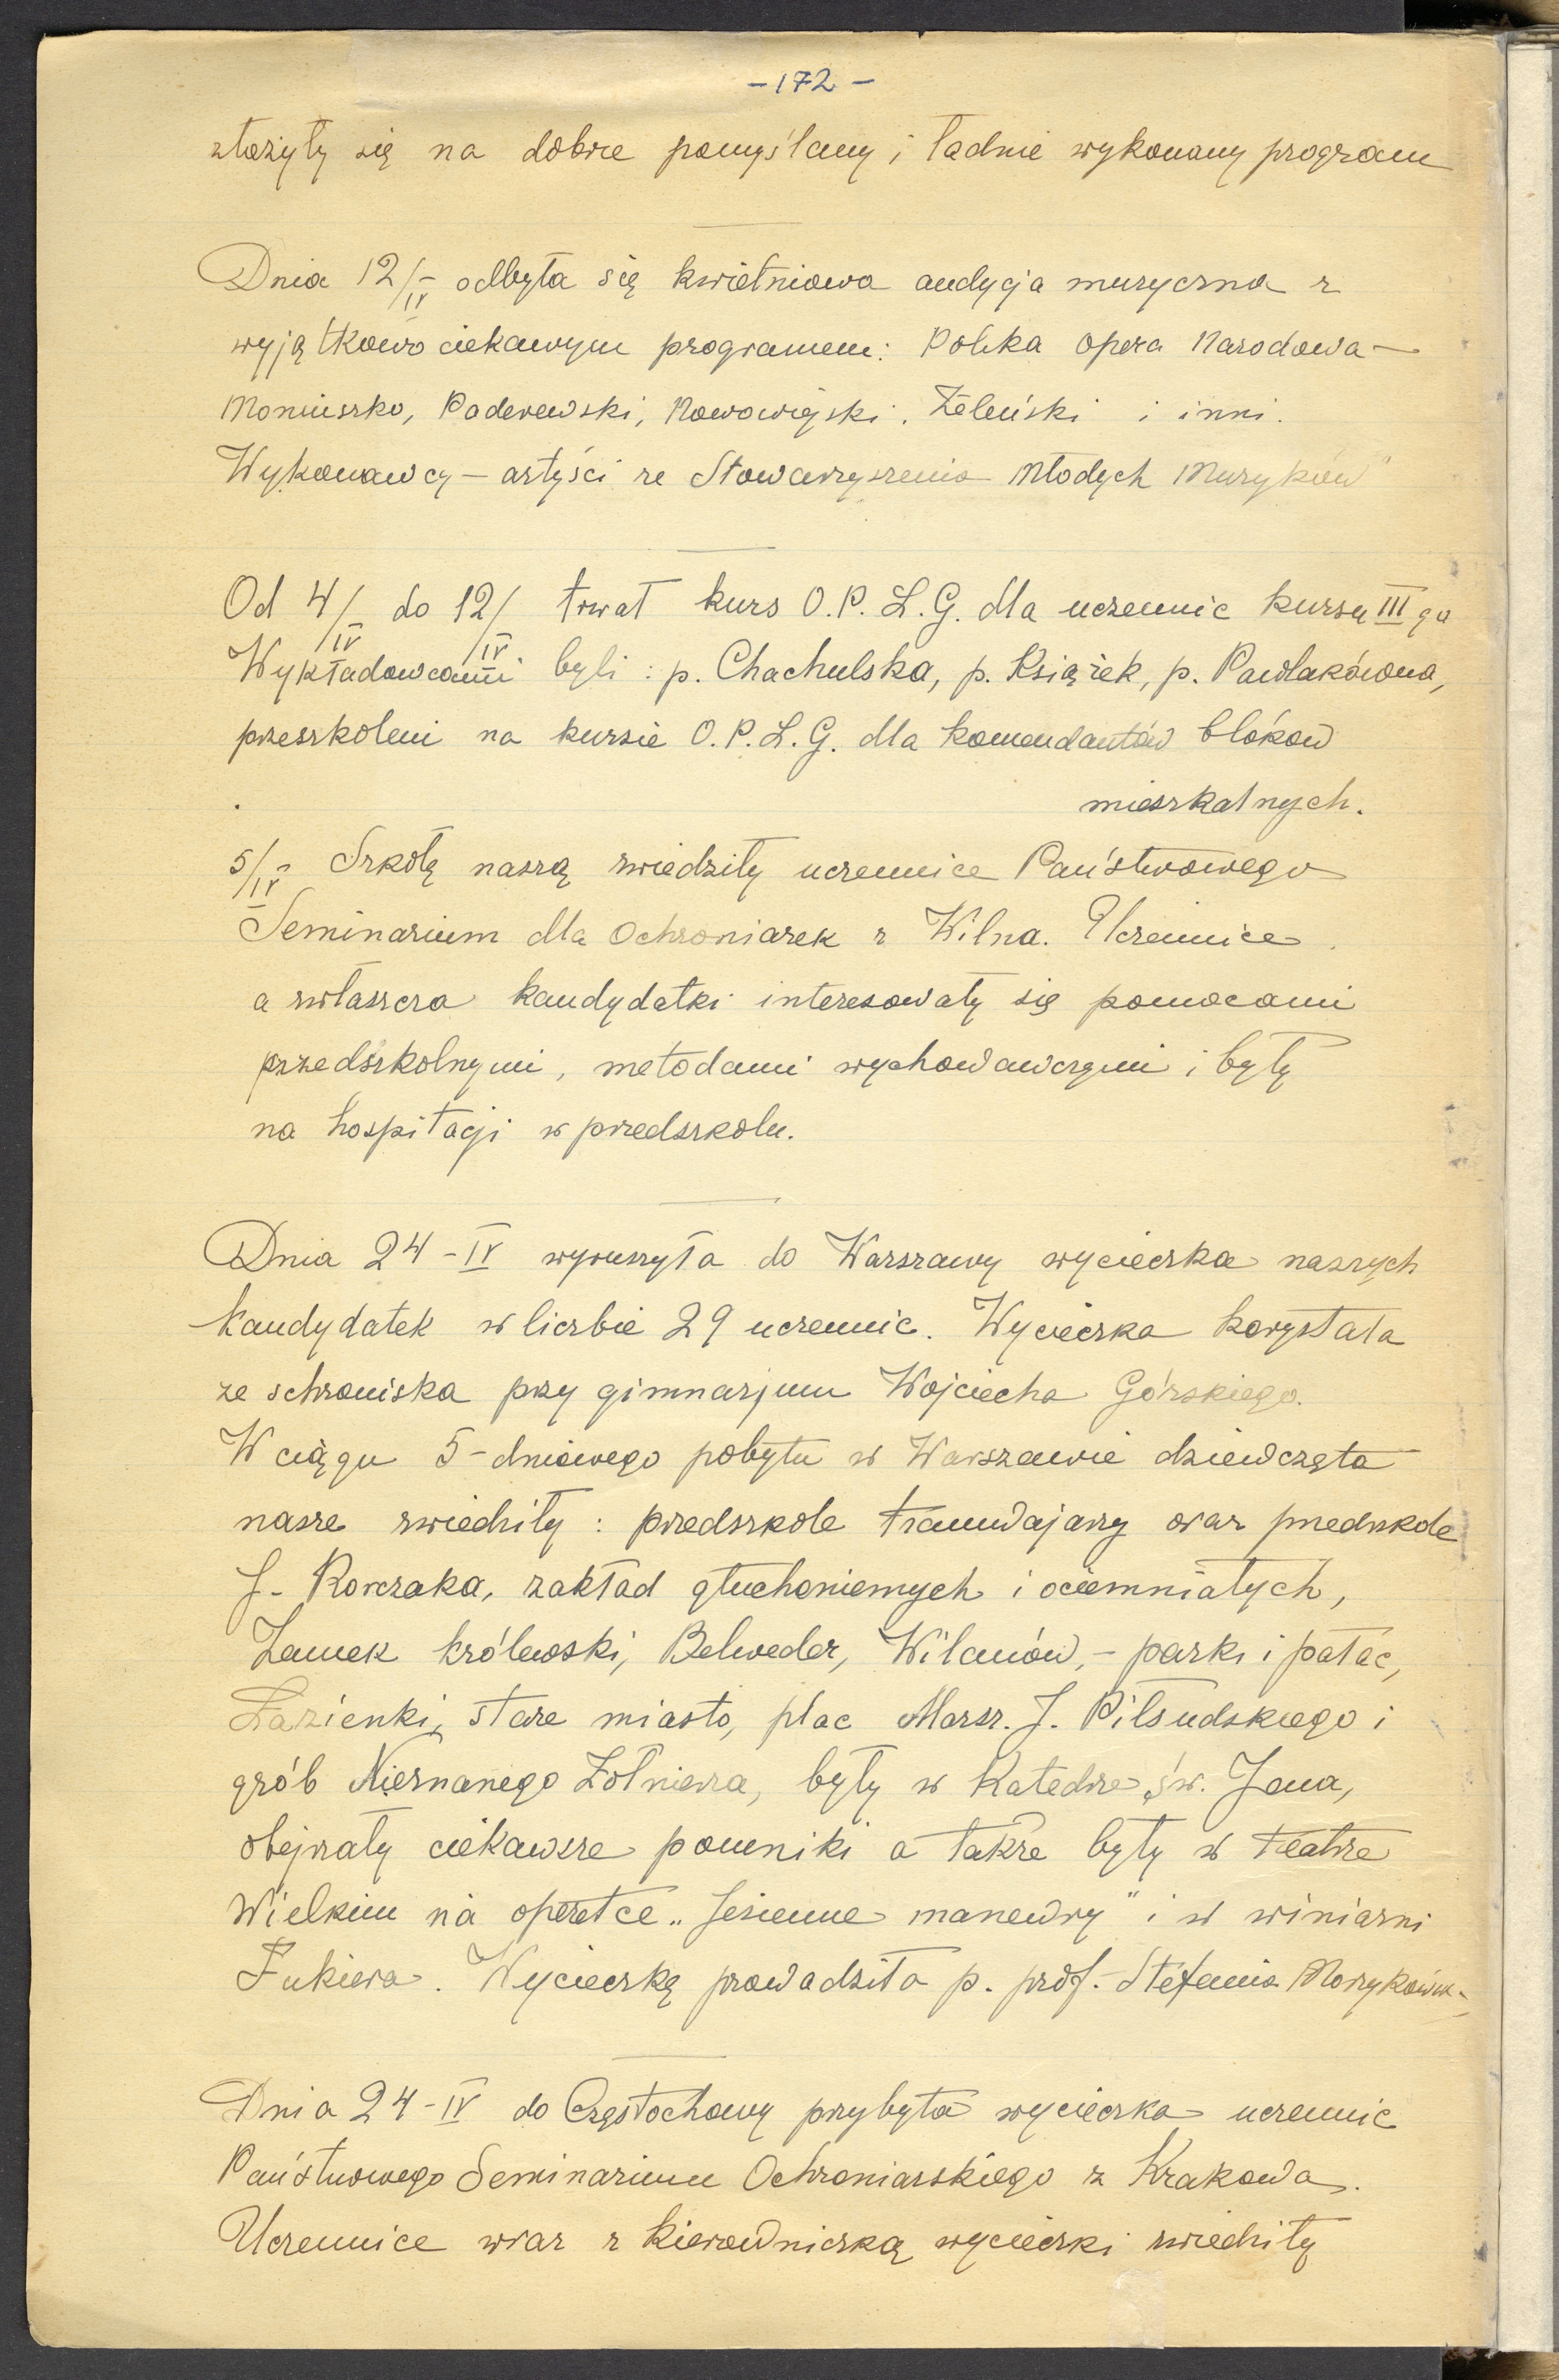 - 172 -
złożyły się na dobrze pomyślany i ładnie wykonany program
Dnia 12/IV odbyła się kwietniowa audycja muzyczna z
wyjątkowo ciekawym programem: Polska Opera Narodowa —
Moniuszko, Paderewski, Nowowiejski, Żeleński i inni.
Wykonawcy — artyści ze Stowarzyszenia Młodych Muzyków"
Od 4/IV do 12/IV trwał kurs O.P.L.G. dla uczennic kursu III go
Wykładowcami byli: p. Chachulska, p. Książek, p. Pawlakówna,
przeszkoleni na kursie O.P.L.G. dla komendantów bloków
mieszkalnych.
5/IV Szkołę naszą zwiedziły uczennice Państwowego
Seminarium dla Ochroniarek z Wilna. Uczennice
a zwłaszcza kandydatki interesowały się pomocami
przedszkolnymi, metodami wychowawczymi i były
na hospitacji w przedszkolu.
Dnia 24-IV wyruszyła do Warszawy wycieczka naszych
kandydatek w liczbie 29 uczennic. Wycieczka korzystała
ze schroniska przy gimnazjum Wojciecha Górskiego.
W ciągu 5-dniowego pobytu w Warszawie dziewczęta
nasze zwiedziły: przedszkole tramwajarzy oraz przedszkole
J. Korczaka, zakład głuchoniemych i ociemniałych,
Zamek królewski, Belweder, Wilanów, - parki i pałac,
Łazienki, stare miasto, plac Marsz. J. Piłsudskiego i
grób Nieznanego Żołnierza, były w Katedrze św. Jana,
obejrzały ciekawsze pomniki a także były w teatrze
Wielkim na operetce „Jesienne manewry" i w winiarni
Fukiera. Wycieczkę prowadziła p. prof. Stefania
Dnia 24-IV do Częstochowy przybyła wycieczka uczennic
Państwowego Seminarium Ochroniarskiego z Krakowa.
Uczennice wraz z kierowniczką wycieczki zwiedziły